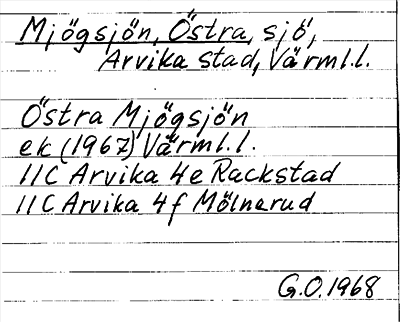 Mjögsjön, Östra, sjö,
Arvika stad, Värml.l.
Östra Mjögsjön
ek (1967) Värml.l.
11C Arvika 4e Rackstad
11C Arvika 4f Mölnerud
G.O.1968